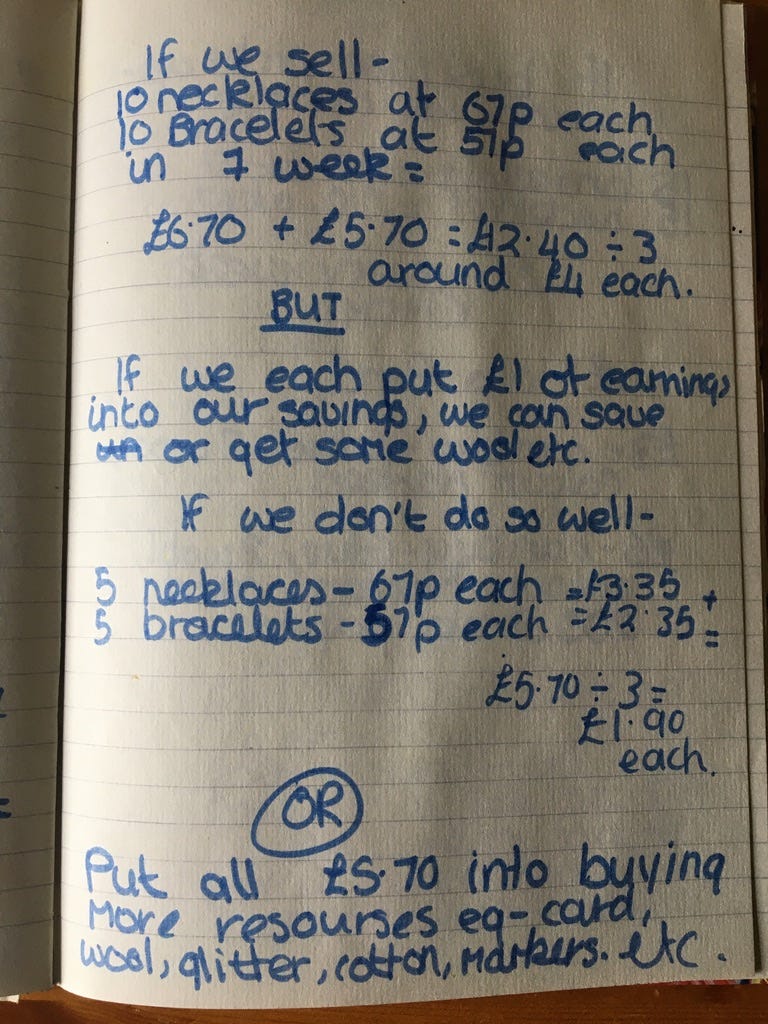 If we sell-
10 necklaces at 67p each
10 Bracelets at 57p each
in 1 week =
£6.70 + £5.70 = £12.40 ÷ 3
around £4 each.
BUT
If we each put £1 of earnings
into our savings, we can save
or get some wool etc.
If we don't do so well-
5 necklaces - 67p each = £3.35 +
5 bracelets - 57p each = £2.35 =
£5.70 ÷ 3 =
£1.90
each.
OR
Put all £5.70 into buying
More resourses eg - card,
wool, glitter, cotton, markers. etc.